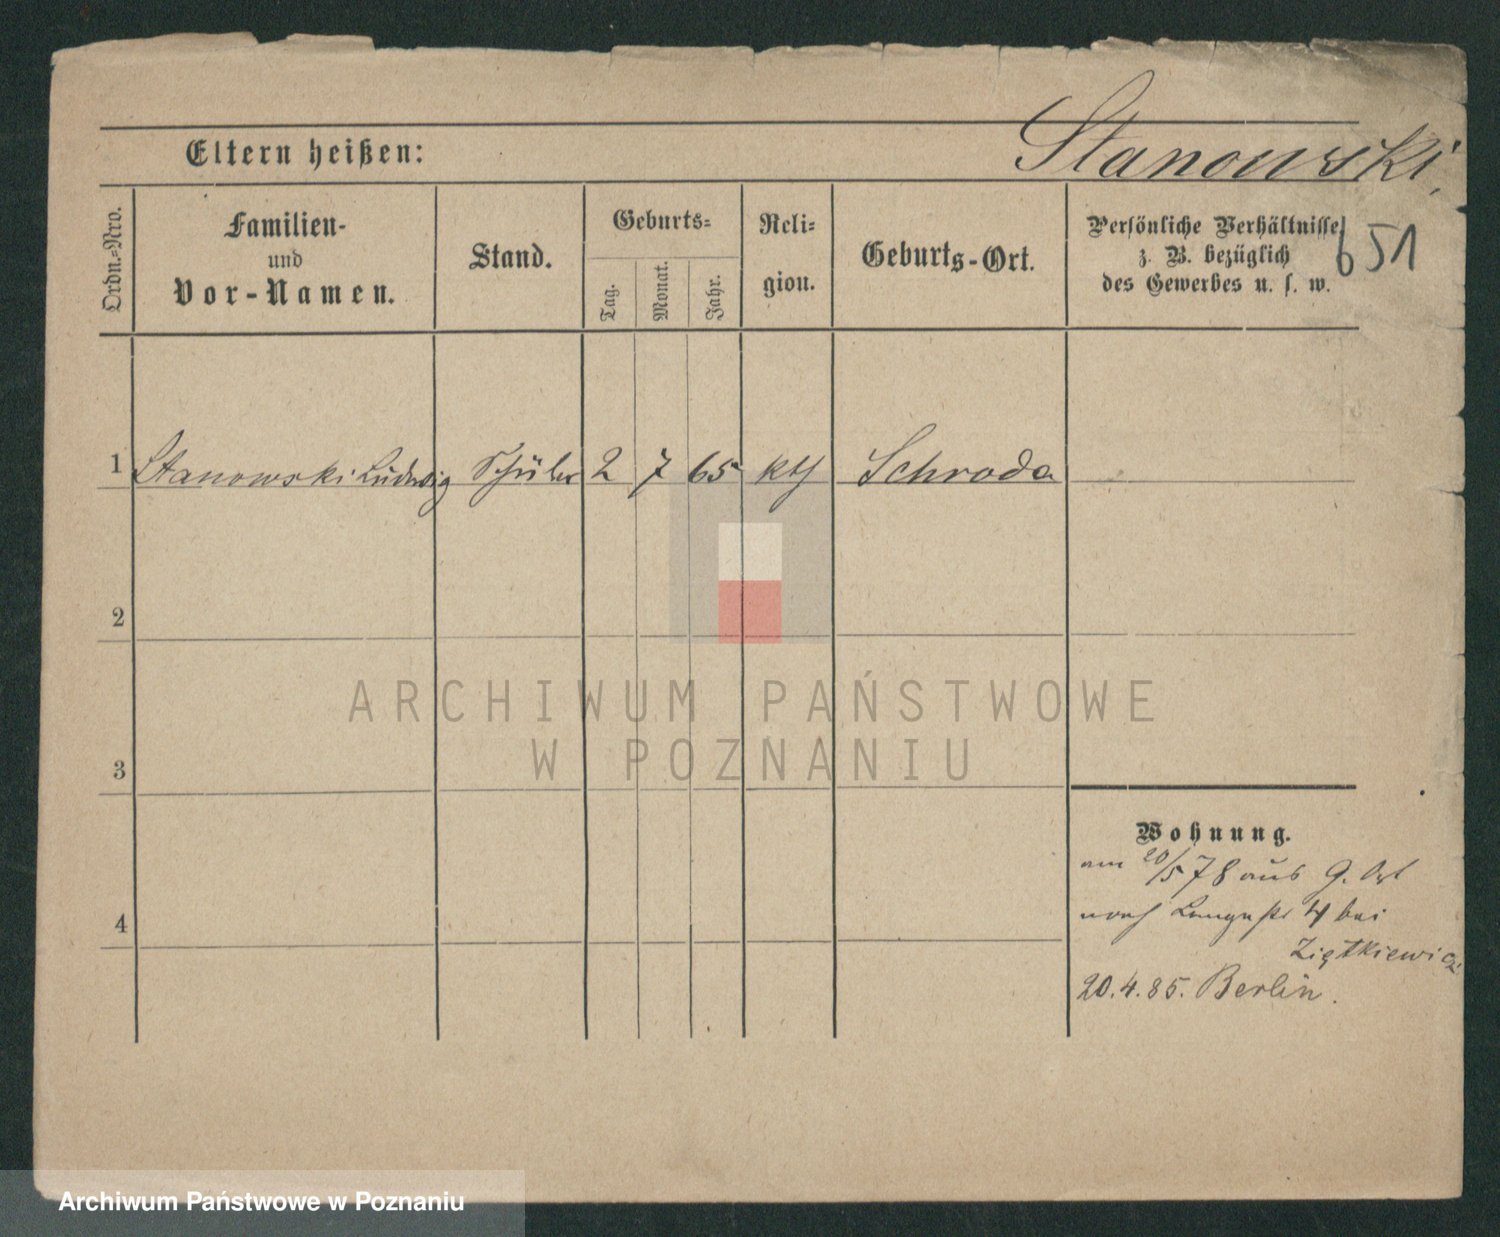 Stanowski
Eltern heißen:
651
Ordn.-Nro.
Familien-
und
Vor-Namen.
Stand.
Geburts-
Tag.
Monat.
Jahr.
Reli-
gion.
Geburts-Ort.
Persönliche Verhältnisse
z. B. bezüglich
des Gewerbes u. s. w.
1 Stanowski Ludwig Schüler 2 7 65 kth Schroda
2
3
4
Wohnung.
am 20/5 78 aus G. Ort
nach Langestr 4 bei
Ziętkiewicz
20.4.85. Berlin.
ARCHIWUM PAŃSTWOWE
W POZNANIU
Archiwum Państwowe w Poznaniu